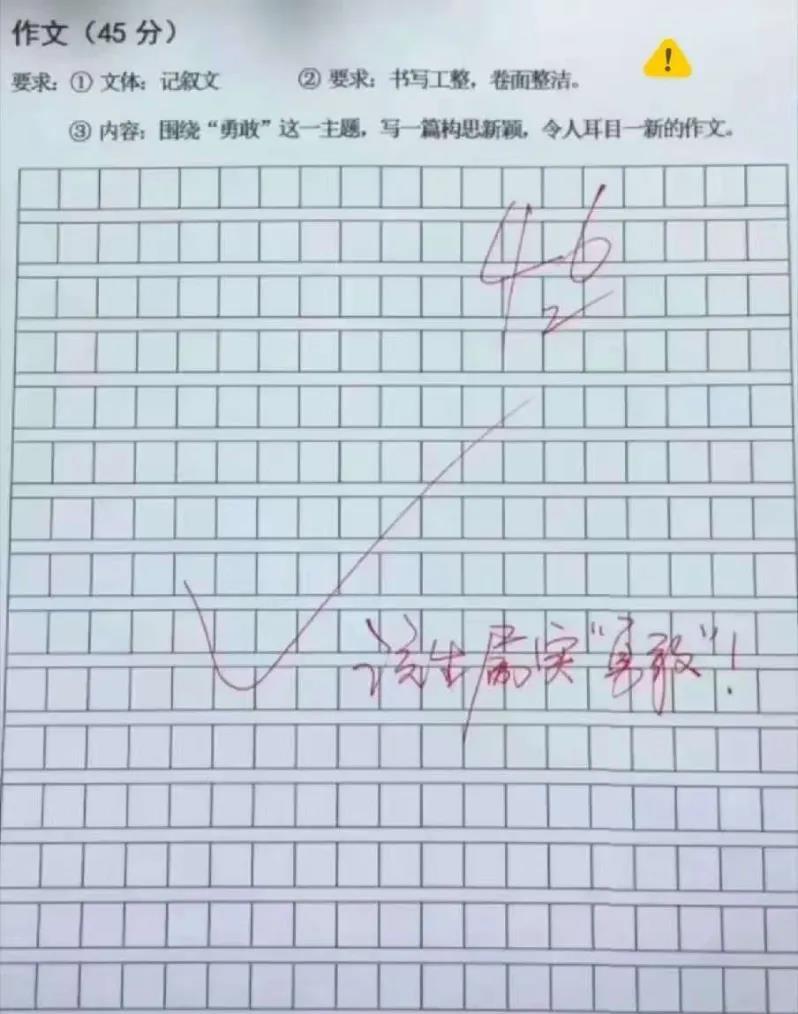 作文（45 分）
要求：① 文体：记叙文 ② 要求：书写工整，卷面整洁。
③ 内容：围绕“勇敢”这一主题，写一篇构思新颖，令人耳目一新的作文。
46
2
该生属实“勇敢”！